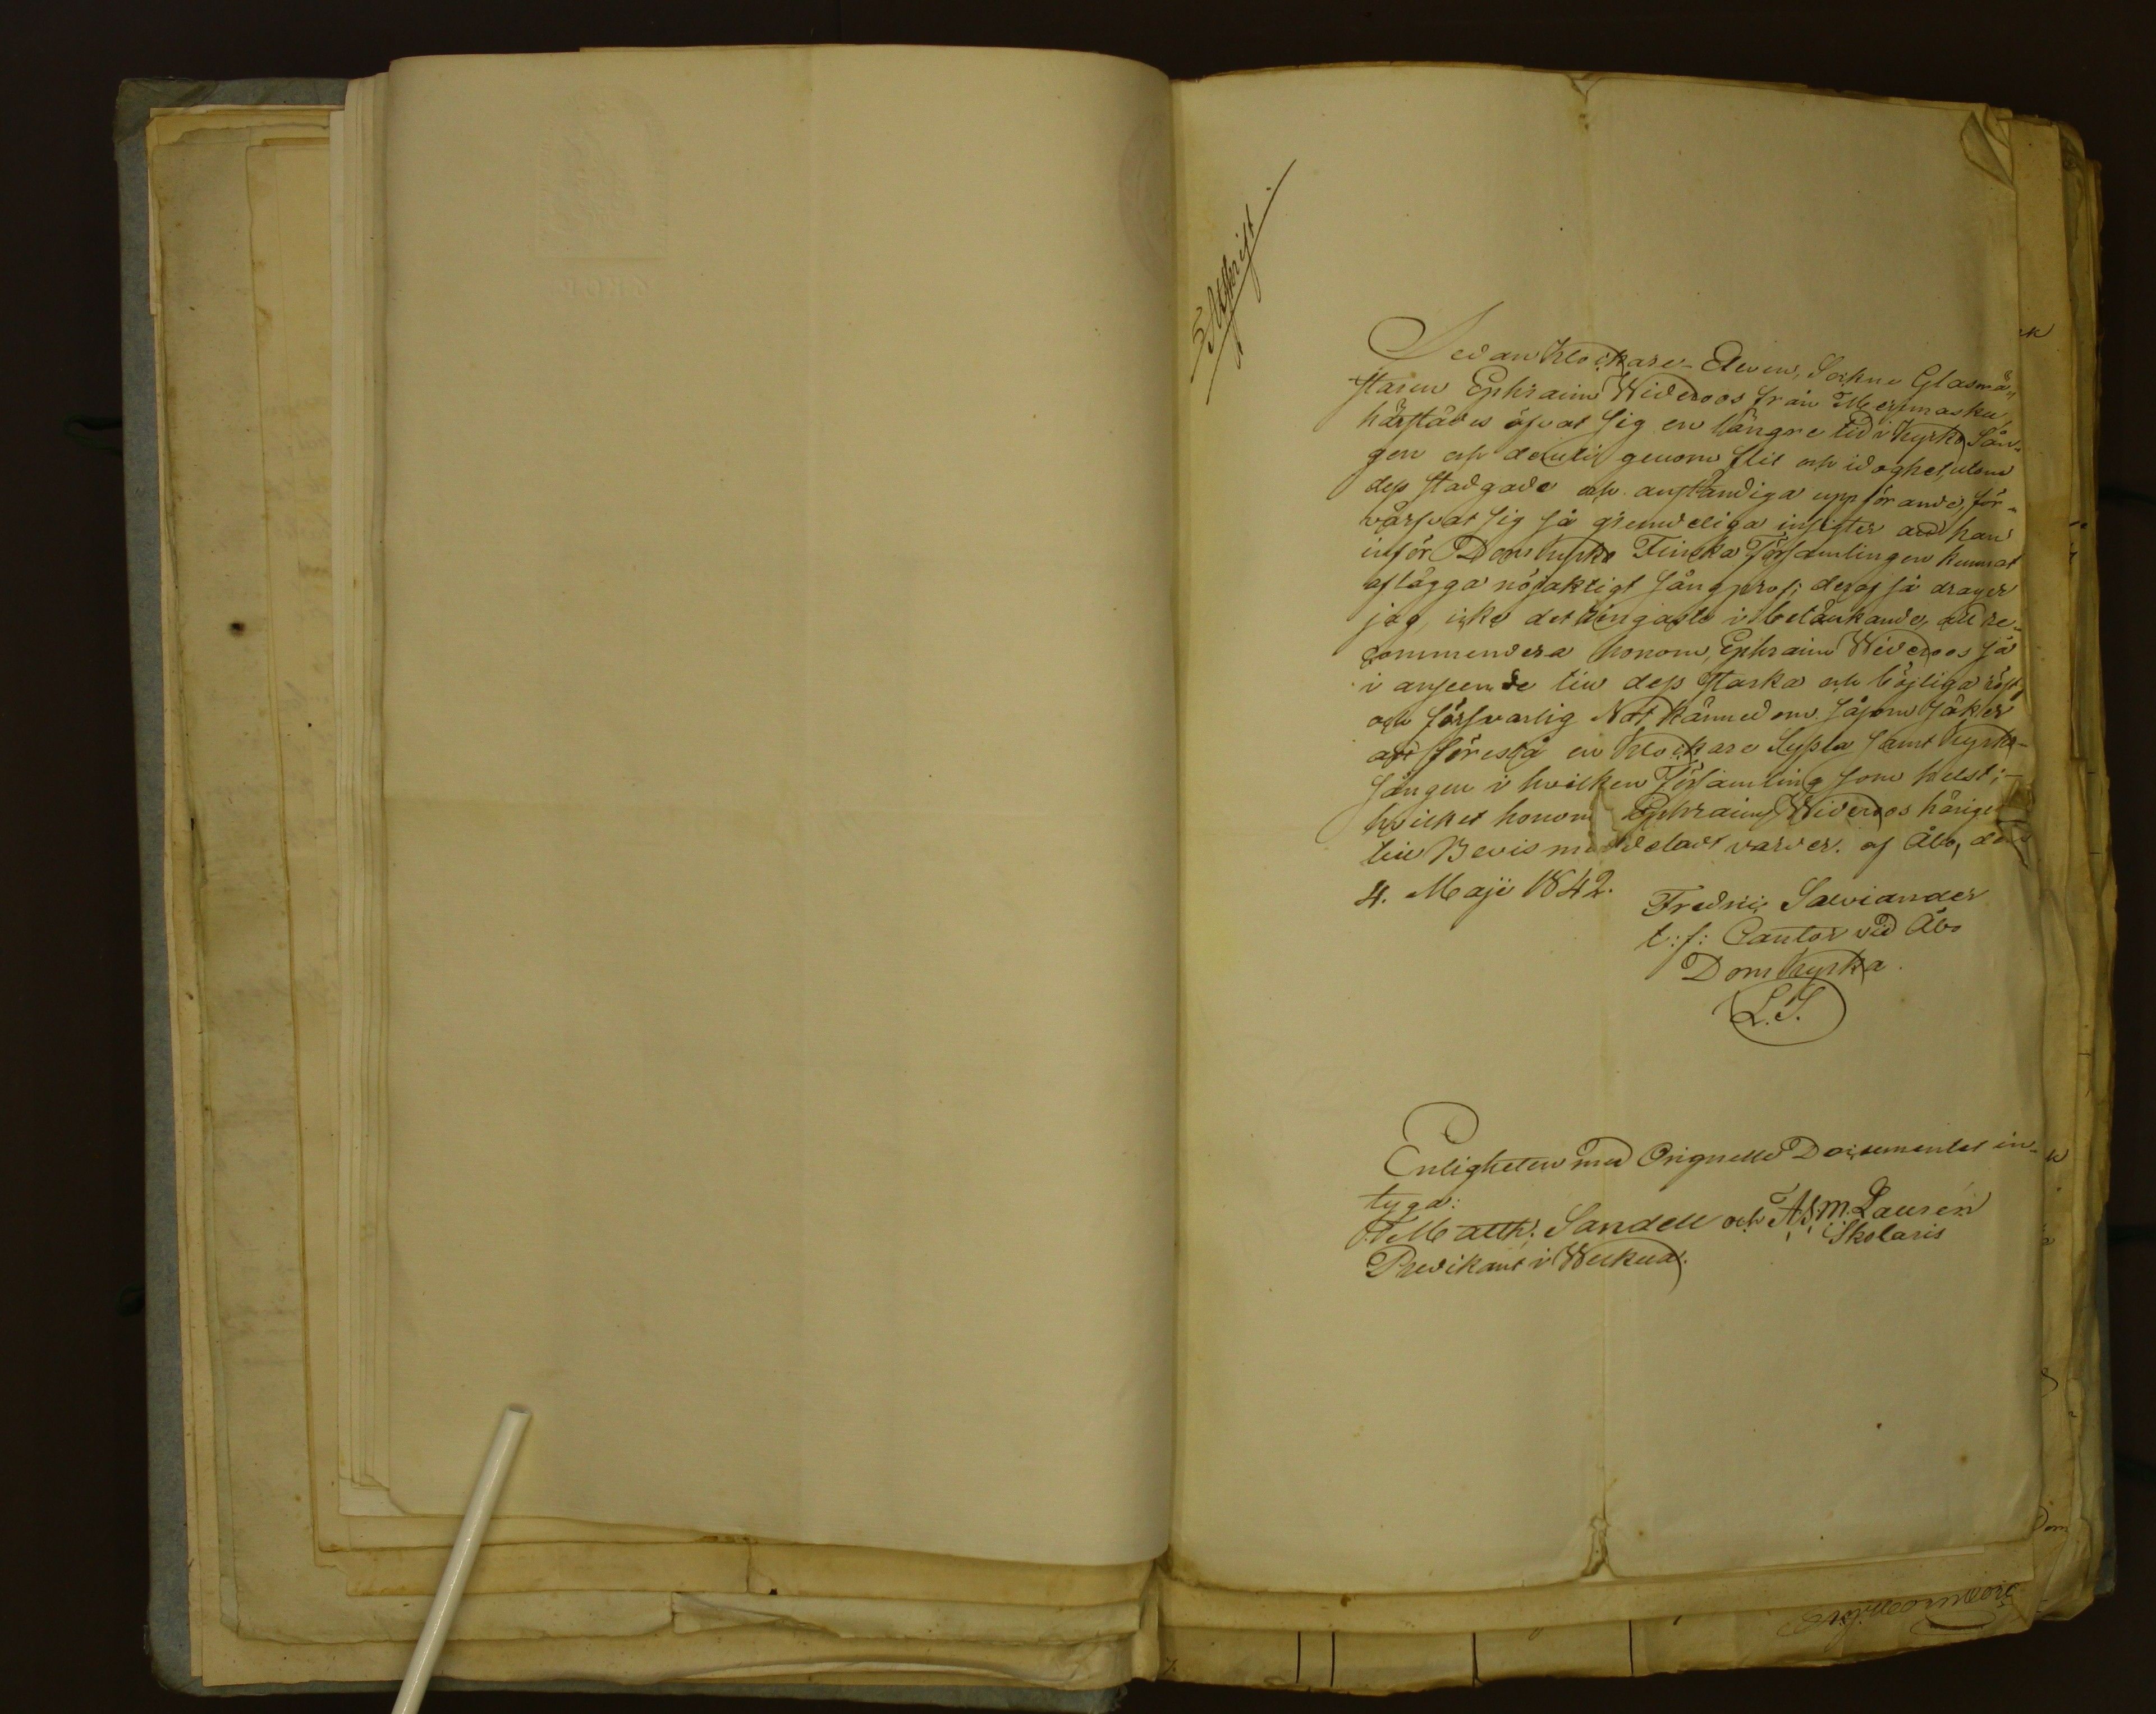 Afskrift.
Sedan Klockare-Eleven, Sockne Glasmä-
staren Ephraim Wideroos från Merimasku,
härstädes öfvat sig en längre tid i Kyrko Sån-
gen och deruti genom flit och idoghet, utom
dess stadgade och anständiga uppförande, för-
värfvat sig så grundeliga insigter att han
inför Domkyrko Finska Församlingen kunnat
aflägga nöjaktigt sångprof; deraf så drager
jag, icke det ringaste i betänkande, att re-
commendera honom, Ephraim Wideroos så
i anseende till dess starka och böjliga röst,
och försvarlig Not kännedom såsom säker
att förestå en Klockare Syssla samt Kyrko-
sången i hvilken Församling som helst;-
hvilket honom Ephraim Wideroos härige
till Bevis meddeladt varder. af Åbo, den
4. Maji 1842.
Fredric Salviander
t:f: Cantor vid Åbo
Domkyrka.
L.S.
Enligheten med Orignelle Documentet in-
tyga:
Matth: Sandell och A. M. Laurén
Skolaris
Predikant i Welkua.